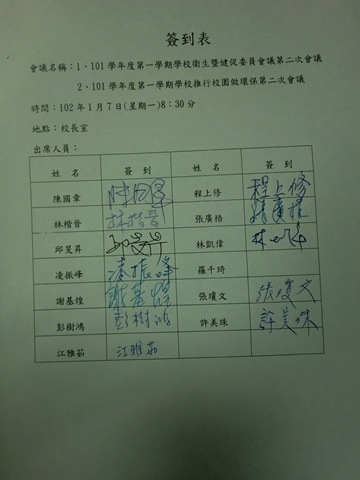 簽到表
會議名稱：1、101學年度第一學期學校衛生暨健促委員會議第二次會議
2、101學年度第一學期學校推行校園做環保第二次會議
時間：102年1月7日(星期一)8：30分
地點：校長室
出席人員：
姓名 簽到 姓名 簽到
陳國章 陳國章 程上修 程上修
林楷晉 林楷晉 張廣梧 張廣梧
邱旻昇 林凱偉
凌振峰 凌振峰 羅千琦
謝基煌 謝基煌 張瓊文 張瓊文
彭樹鴻 彭樹鴻 許美珠 許美珠
江雅茹 江雅茹